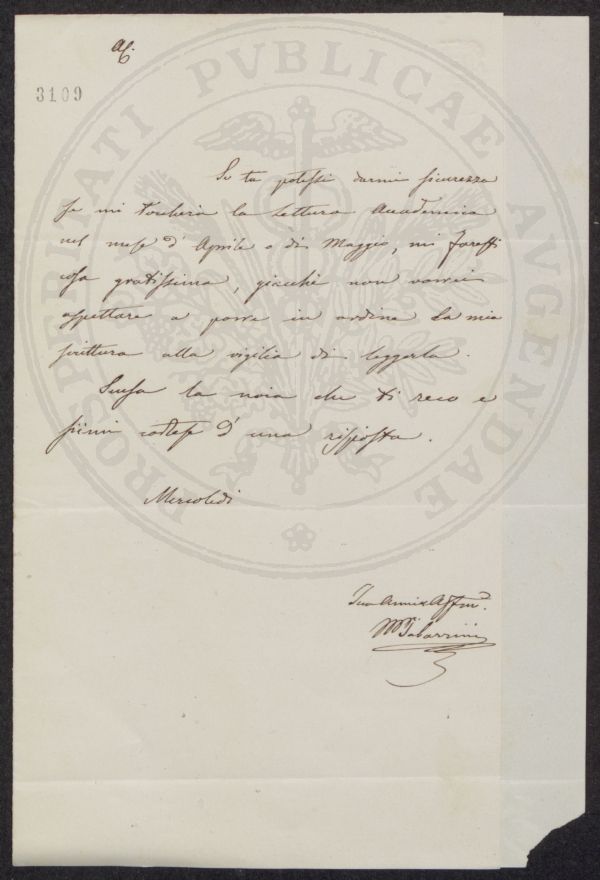 AC.
3109
PROSPERITATI PVBLICAE AVGENDAE
Se tu potessi darmi sicurezza
se mi toccherà la lettura Accademica
nel mese d'Aprile o di Maggio, mi faresti
cosa gratissima, giacchè non vorrei
aspettare a porre in ordine la mia
scrittura alla vigilia di leggerla.
Scusa la noia che ti reco e
siimi cortese d'una risposta.
Mercoledì
Tuo Amico Affmo.
M Tabarrini